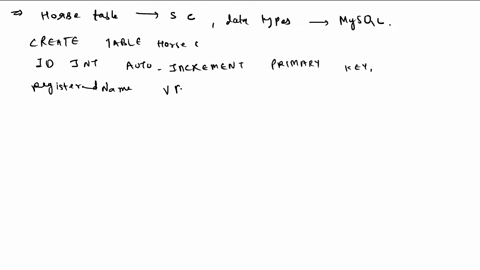 ⇒ Horse table ⟶ S C , data types ⟶ MySQL.
CREATE TABLE Horse (
ID INT AUTO_INCREMENT PRIMARY KEY,
RegisteredName